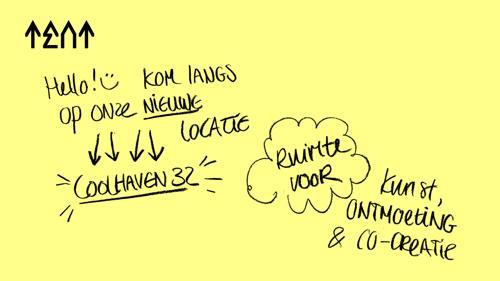 TENT
Hello! KOM LANGS
OP ONZE NIEUWE
LOCATIE
COOLHAVEN 32
RUIMTE
VOOR
KUNST,
ONTMOETING
& CO-CREATIE